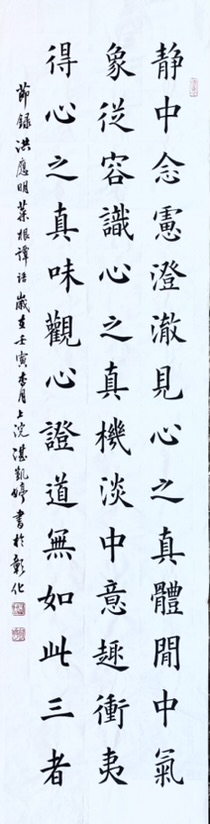 靜中念慮澄澈見心之真體閒中氣
象從容識心之真機淡中意趣衝夷
得心之真味觀心證道無如此三者
節錄洪應明菜根譚語歲在壬寅杏月上浣湛凱婷書於彰化